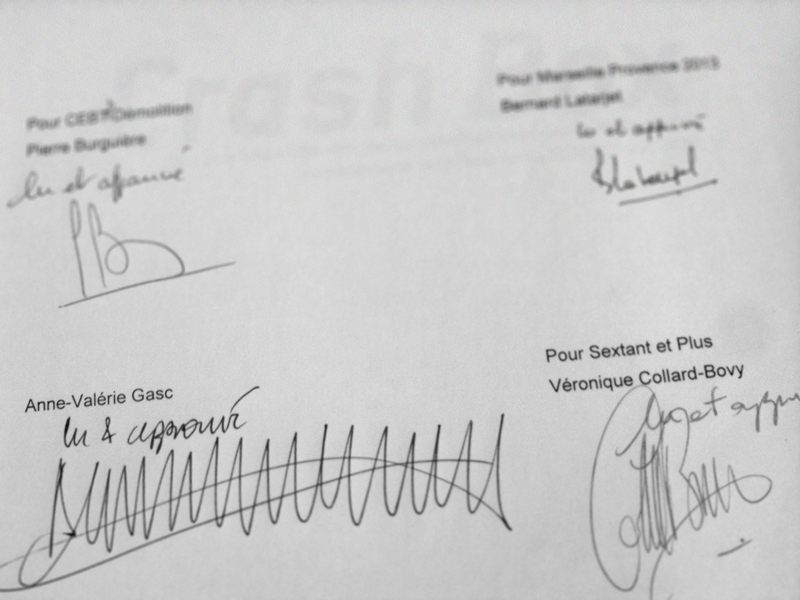 Crash Box
Pour CEBTP Démolition
Pierre Burguière
lu et approuvé
Pour Marseille Provence 2013
Bernard Latarjet
lu et approuvé
BLatarjet
Anne-Valérie Gasc
lu & approuvé
Pour Sextant et Plus
Véronique Collard-Bovy
lu et appr